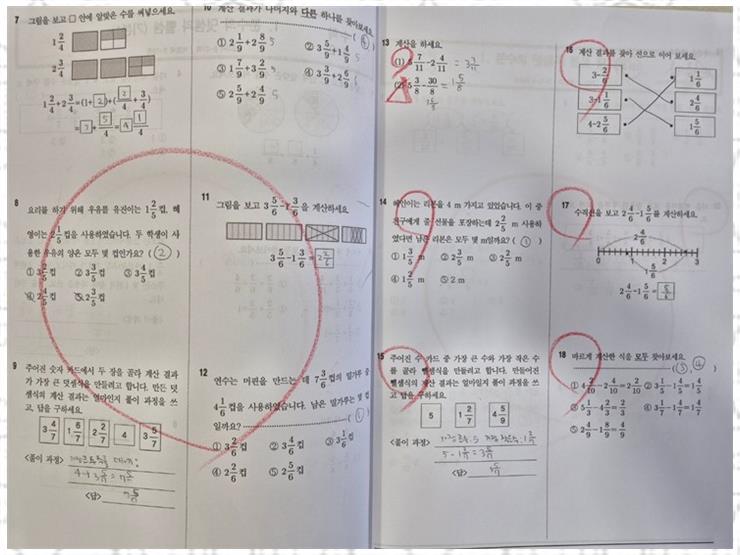 7 그림을 보고 □ 안에 알맞은 수를 써넣으세요.
1 2/4
2 3/4
1 2/4 + 2 3/4 = (1+2) + (2/4 + 3/4)
= 3 + 5/4 = 4 1/4
10 계산 결과가 나머지와 다른 하나를 찾아보세요.
① 2 1/9 + 2 8/9 5 ② 3 5/9 + 1 4/9 5
③ 1 7/9 + 3 2/9 5 ④ 3 3/9 + 2 6/9
⑤ 2 5/9 + 2 4/9
8
요리를 하기 위해 우유를 유진이는 1 2/5 컵, 혜
영이는 2 1/5 컵을 사용하였습니다. 두 학생이 사
용한 우유의 양은 모두 몇 컵인가요? (②)
① 3 2/5 컵 ② 3 3/5 컵 ③ 3 4/5 컵
④ 2 4/5 컵 ⑤ 2 3/5 컵
11
그림을 보고 3 5/6 - 1 3/6 을 계산하세요.
3 5/6 - 1 3/6 = 2 2/6
9
주어진 숫자 카드에서 두 장을 골라 계산 결과
가 가장 큰 덧셈식을 만들려고 합니다. 만든 덧
셈식의 계산 결과는 얼마인지 풀이 과정을 쓰
고, 답을 구하세요.
3 4/7 1 6/7 2 2/7 4 3 5/7
<풀이 과정>
4+3 5/7 = 7 5/7
<답> 7 5/7
12
연수는 머핀을 만드는 데 7 3/6 컵의 밀가루 중
4 1/6 컵을 사용하였습니다. 남은 밀가루는 몇 컵
일까요?
① 3 2/6 컵 ② 3 4/6 컵 ③ 3 1/6 컵
④ 2 2/6 컵 ⑤ 2 5/6 컵
13 계산을 하세요.
= 3 7/11
(2) 5 3/8 - 30/8 = 1 5/8
14
혜인이는 리본을 4 m 가지고 있었습니다. 이 중
친구에게 줄 선물을 포장하는데 2 2/5 m 사용하
였다면 남은 리본은 모두 몇 m일까요? (①)
① 1 3/5 m ② 2 3/5 m ③ 2 2/5 m
④ 1 2/5 m ⑤ 2 m
15
주어진 수 카드 중 가장 큰 수와 가장 작은 수
를 골라 뺄셈식을 만들려고 합니다. 만들어진
뺄셈식의 계산 결과는 얼마인지 풀이 과정을 쓰
고, 답을 구하세요.
5 1 2/7 4 5/9
<풀이 과정>
5 - 1 2/7 = 3 5/7
<답> 3 5/7
16 계산 결과를 찾아 선으로 이어 보세요.
1 1/6
3-1 1/6 2 4/6
4-2 5/6 1 5/6
17
수직선을 보고 2 4/6 - 1 5/6 를 계산하세요.
2 4/6
0 1 2 3
1 5/6
2 4/6 - 1 5/6 = 5/6
18 바르게 계산한 식을 모두 찾아보세요.
① 4 2/10 - 2 4/10 = 2 2/10 ② 3 1/5 - 1 4/5 = 1 4/5
③ 5 1/3 - 2 2/3 = 2 2/3 ④ 3 1/7 - 1 4/7 = 1 4/7
⑤ 2 4/9 - 1 8/9 = 4/9